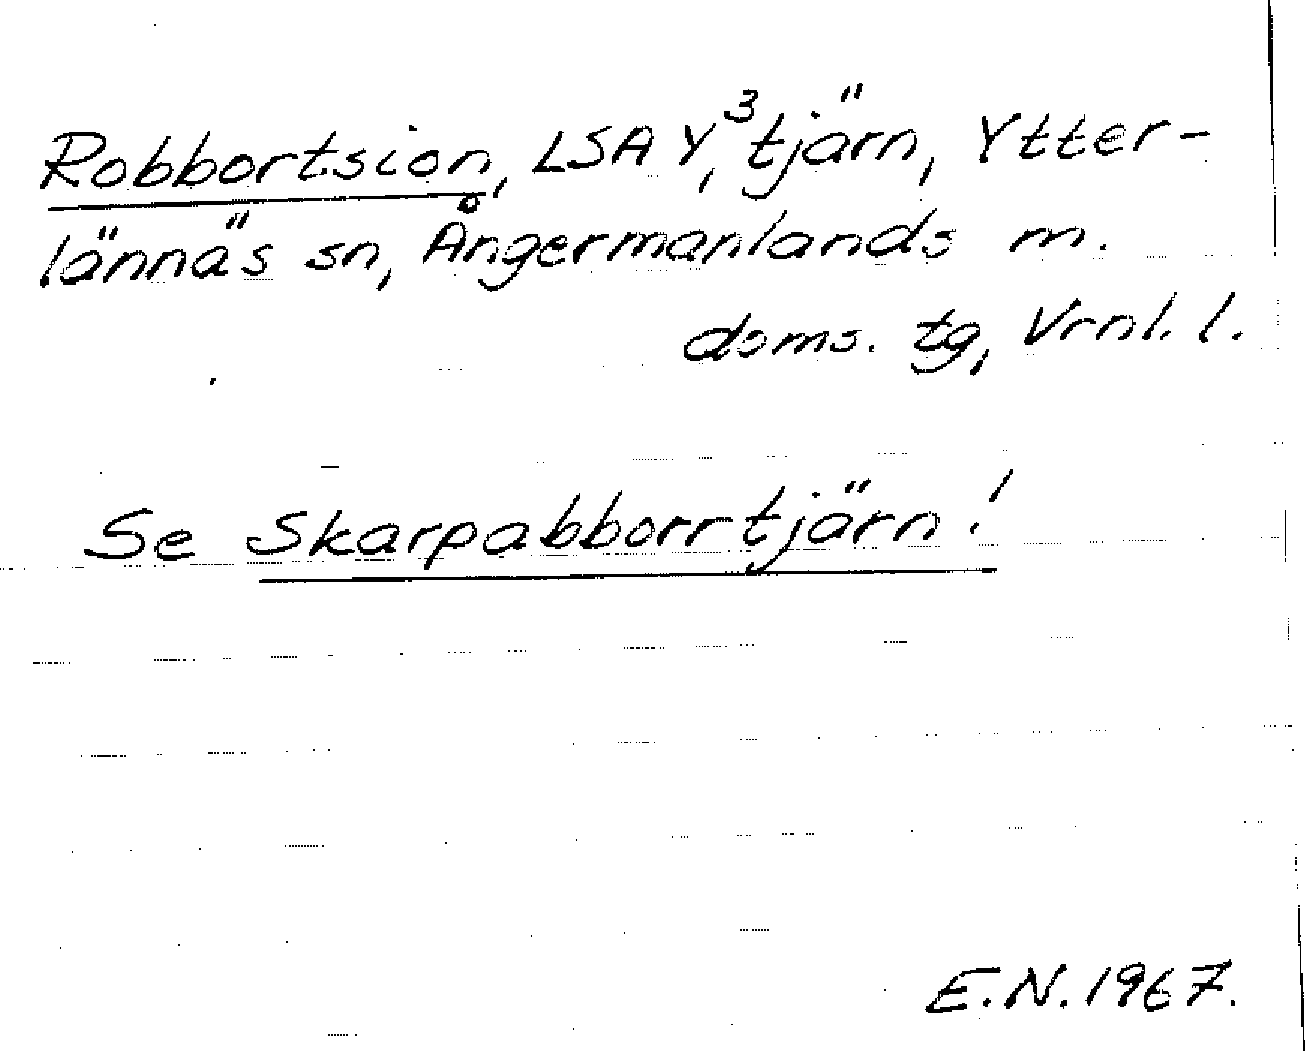 Robbortsion, LSA Y³, tjärn, Ytter-
lännäs sn, Ångermanlands m.
doms. tg, Vrnl. l.
Se Skarpabborrtjärn!
E.N. 1967.